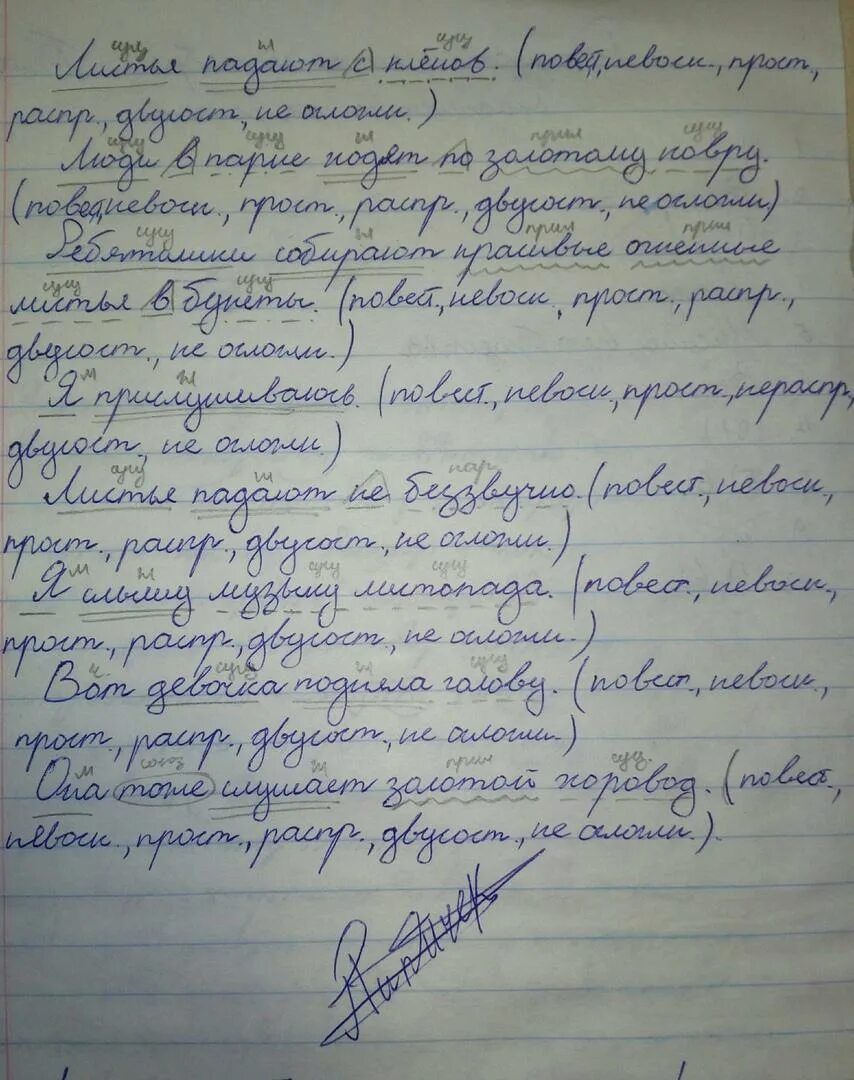 сущ гл сущ
Листья падают с клёнов. (повест, невоск., прост.,
распр., двусост., не ослогн.)
сущ сущ гл прил сущ
Люди в парке ходят по золотому ковру.
(повест, невоск., прост., распр., двусост., не ослогн.)
сущ гл прил прил
Ребятишки собирают красивые огненные
сущ сущ
листья в букеты. (повест., невоск., прост., распр.,
двусост., не ослогн.)
м гл
Я прислушиваюсь. (повест., невоск., прост., нераспр.,
двусост., не ослогн.)
сущ гл нар.
Листья падают не беззвучно. (повест., невоск.,
прост., распр., двусост., не ослогн.)
м гл сущ сущ
Я слышу музыку листопада. (повест., невоск.,
прост., распр., двусост., не ослогн.)
ч сущ гл сущ
Вот девочка подняла голову. (повест., невоск.,
прост., распр., двусост., не ослогн.)
м союз гл прил сущ.
Она тоже слушает золотой хоровод. (повест.,
невоск., прост., распр., двусост., не ослогн.).